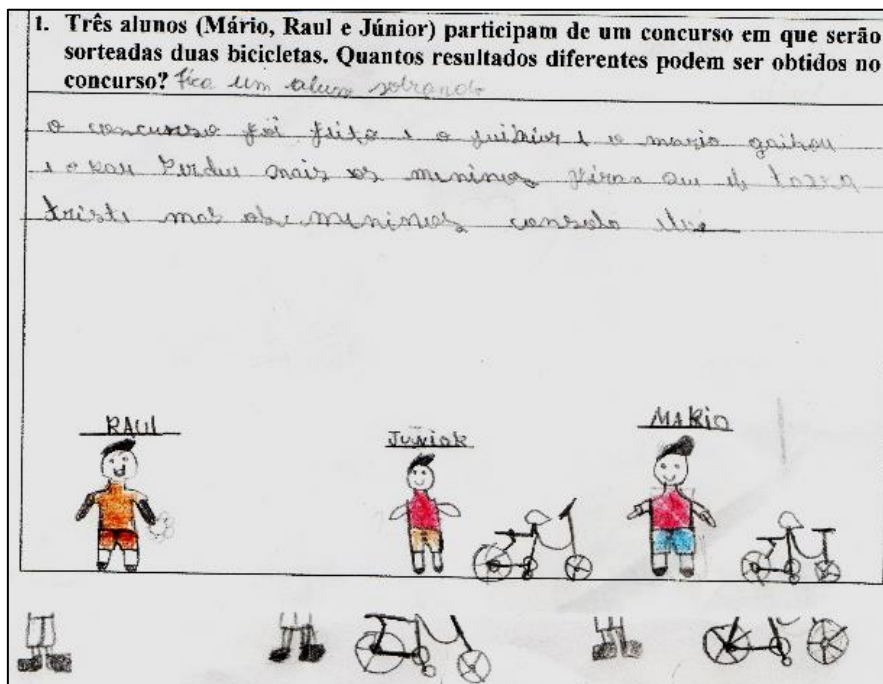 1. Três alunos (Mário, Raul e Júnior) participam de um concurso em que serão
sorteadas duas bicicletas. Quantos resultados diferentes podem ser obtidos no
concurso? Fica um aluno sobrando
o concurso foi feito e o juinior e o mario gaihou
e o Perdeu mais os meninos
triste mas os meninos consolo
RAUL
JUNIOR
MARIO